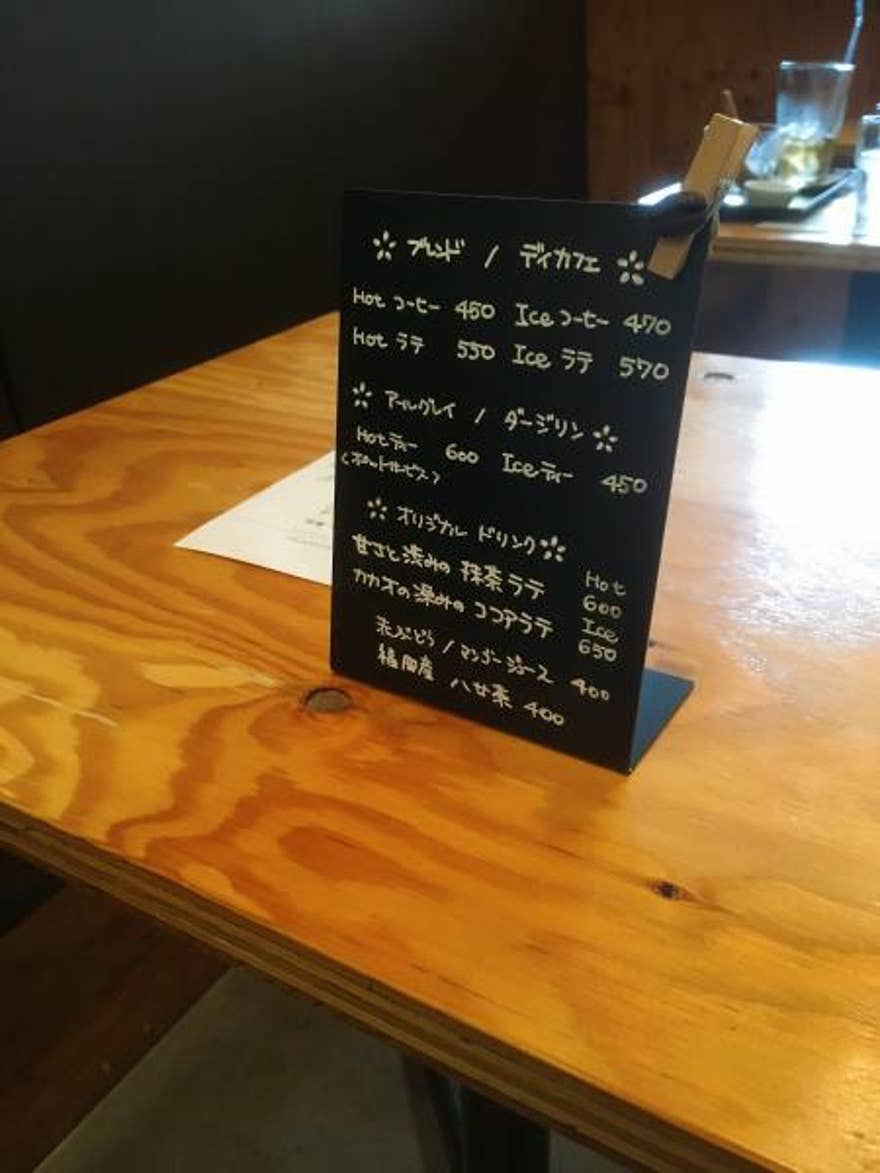 ブレンド / ディカフェ
Hot コーヒー 450 Ice コーヒー 470
Hot ラテ 550 Ice ラテ 570
アールグレイ / ダージリン
Hot ティー 600 Ice ティー 450
(ポットサービス)
オリジナル ドリンク
甘さと渋みの 抹茶ラテ Hot 600
カカオの深みの ココアラテ Ice 650
赤ぶどう / マンゴージュース 400
福岡産 八女茶 400